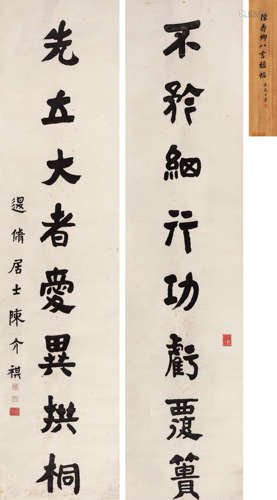 不矜細行功虧覆簣
先立大者愛異拱桐
退脩居士陳介祺
陳壽卿八言楹帖